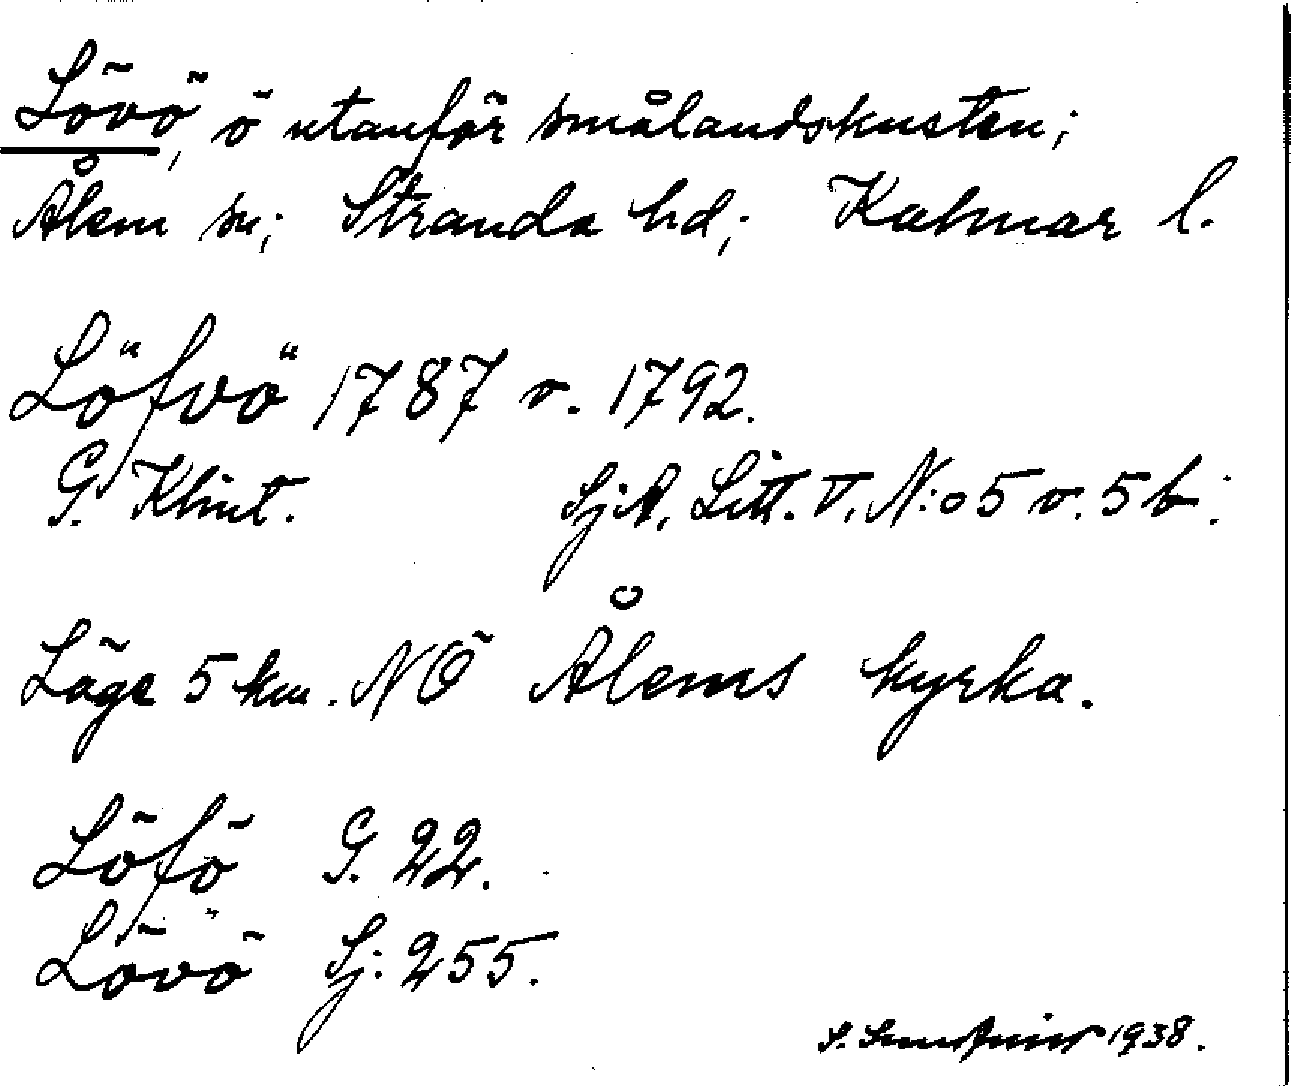 Lövö, ö utanför smålandskusten;
Ålem sn; Stranda hd; Kalmar l.
Löfvö 1787 o. 1792.
G. Klint. SjA, Litt. V, N:o 5 o. 5 b.
Läge 5 km. NÖ Ålems kyrka.
Löfö G. 22.
Lövö Sj: 255.
S. 1938.